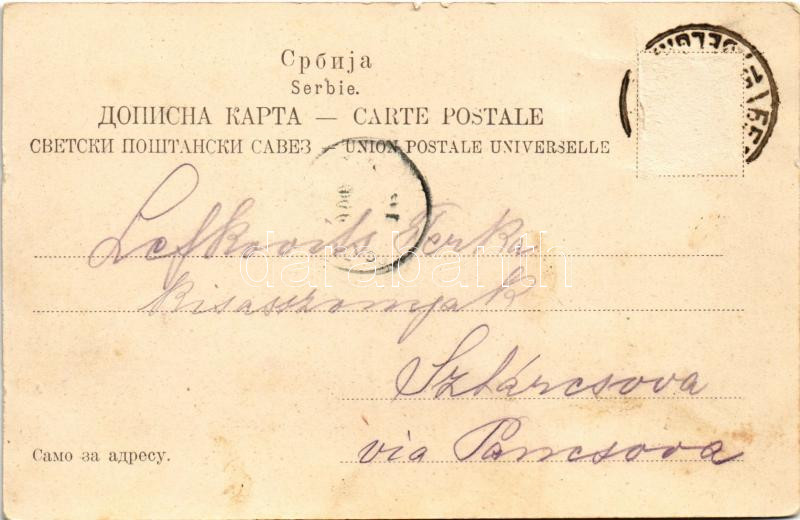 Србија
Serbie.
ДОПИСНА КАРТА — CARTE POSTALE
СВЕТСКИ ПОШТАНСКИ САВЕЗ — UNION POSTALE UNIVERSELLE
Lefkovits Terka
kisasszonynak
Sztárcsova
via Pancsova
Само за адресу.
darabanth